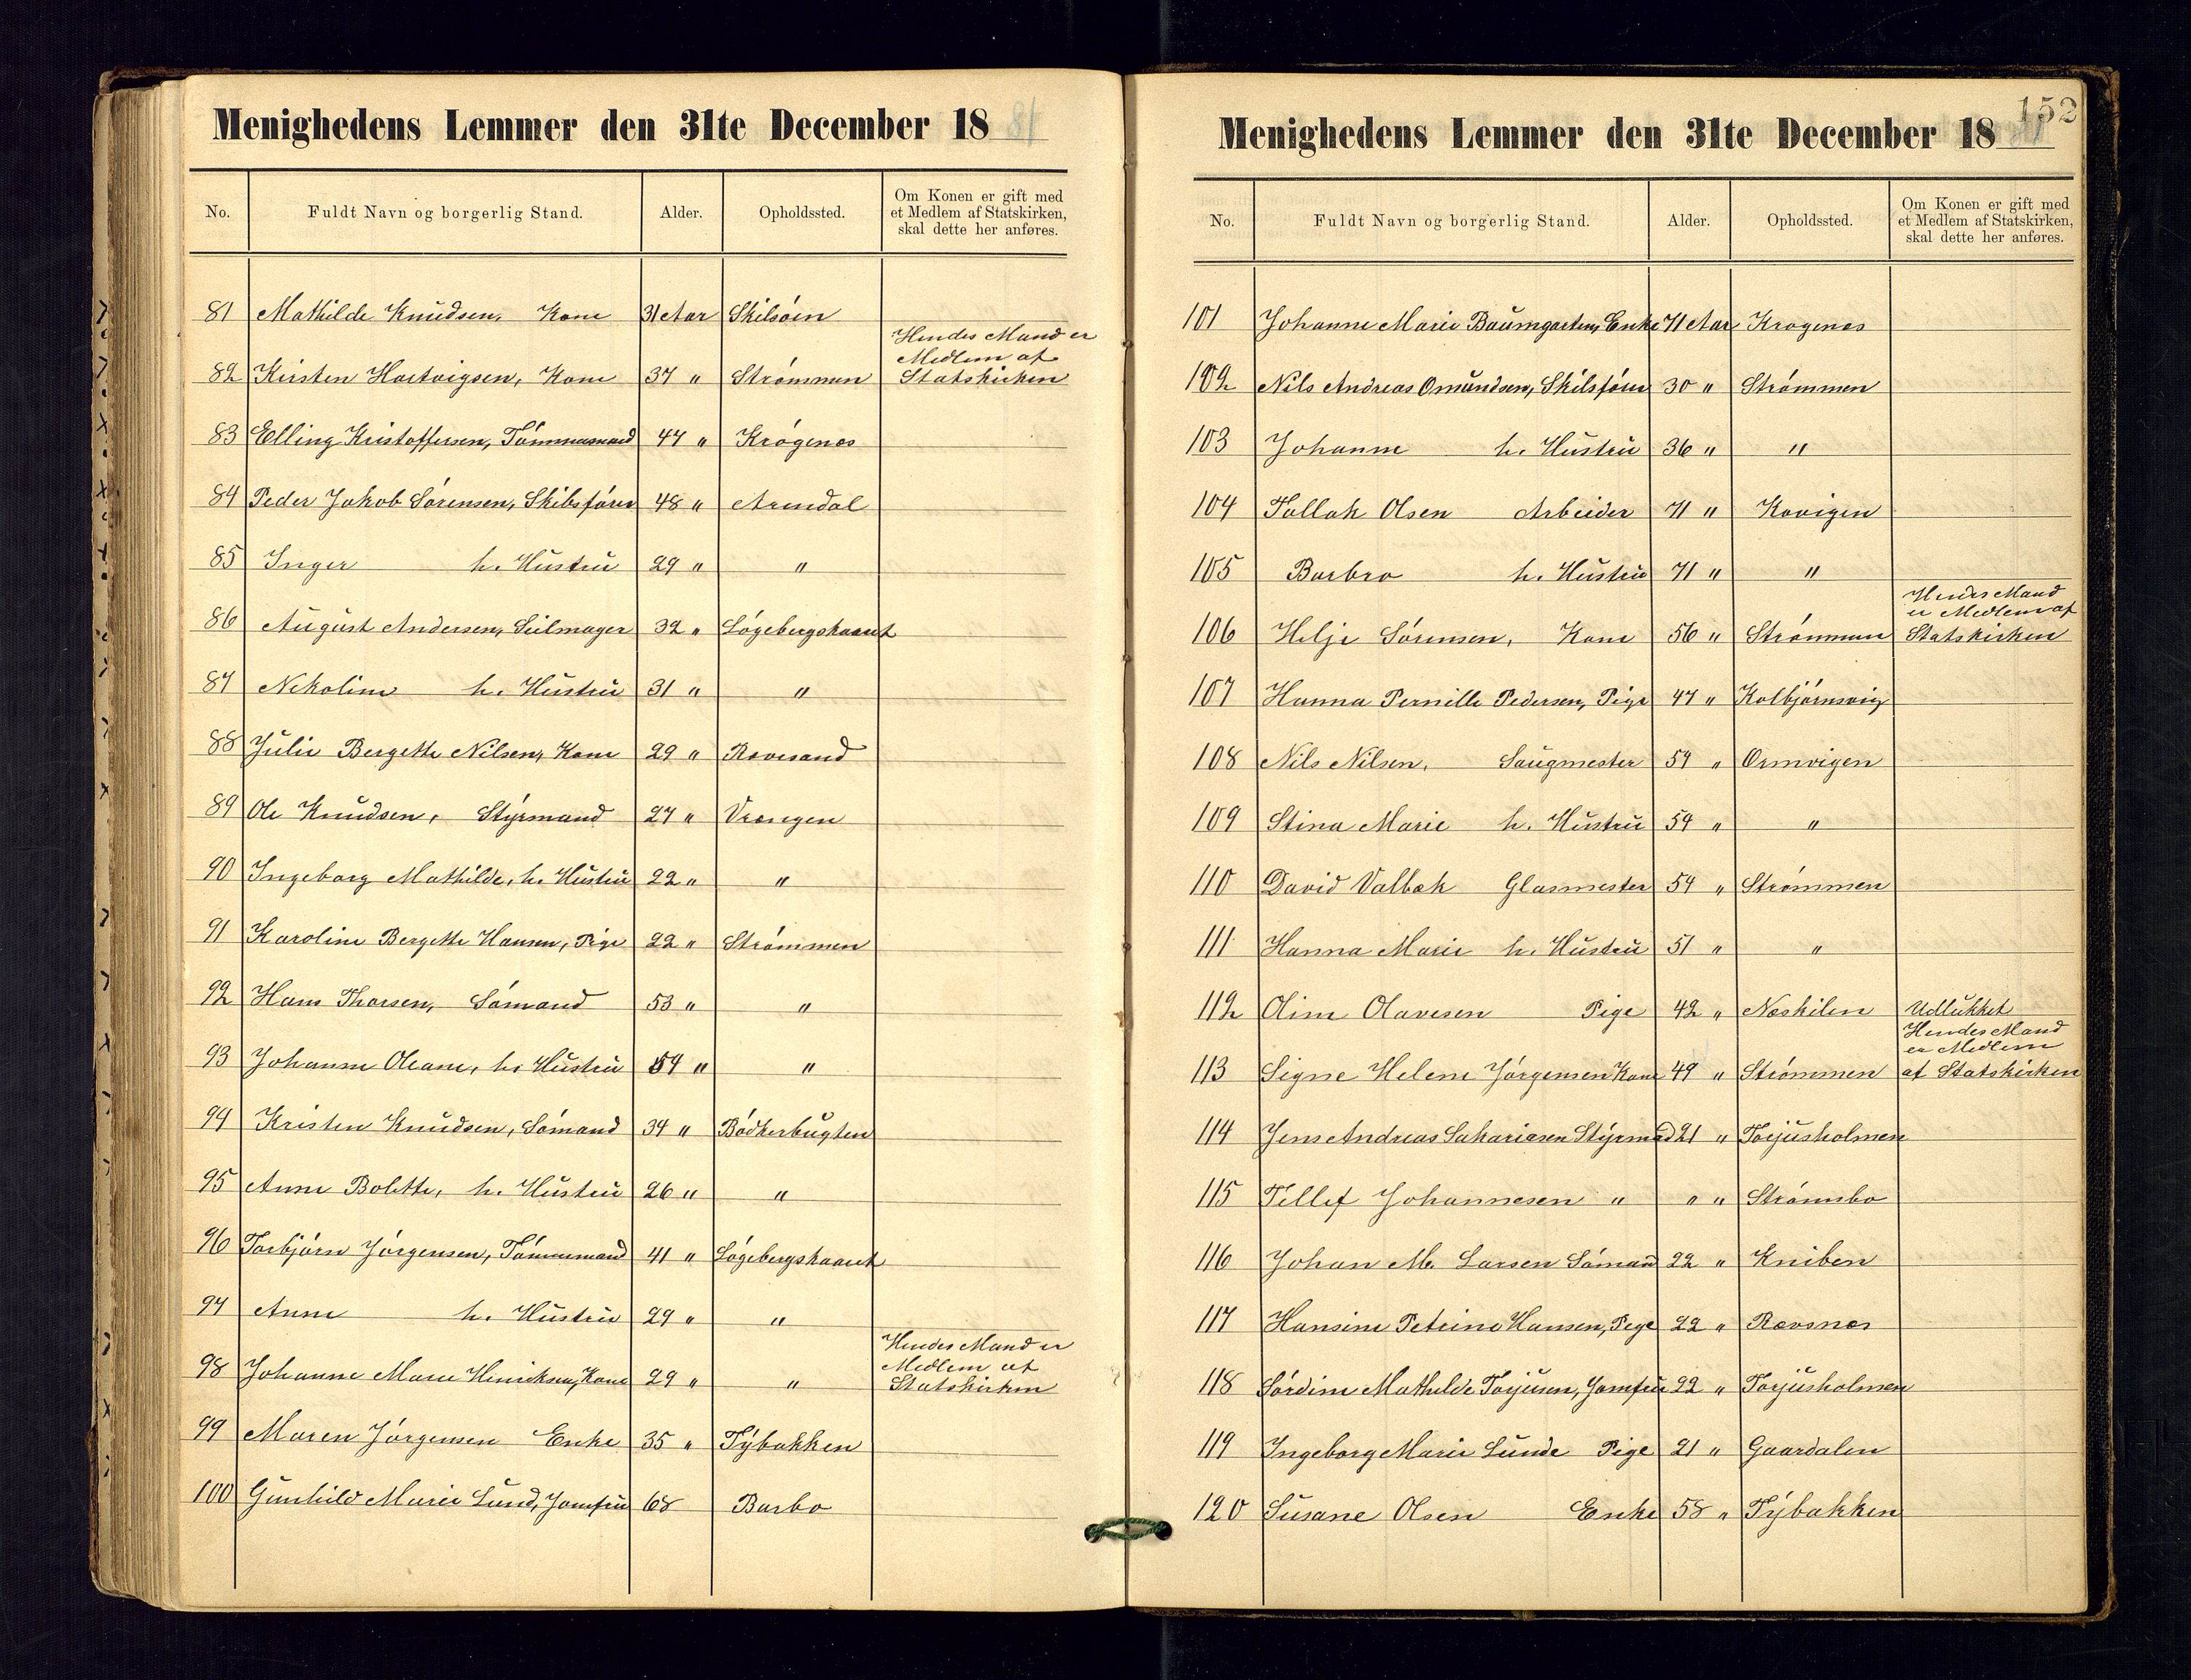 Menighedens Lemmer den 31te December 1881
No. Fuldt Navn og borgerlig Stand. Alder. Opholdssted. Om Konen er gift med
et Medlem af Statskirken,
skal dette her anføres.
81 Mathilde Knudsen, Kone 31 Aar Skilsøin
Hendes Mand er
Medlem af
82 Kirsten Hartvigsen, Kone 37 " Strømmen Statskirken
83 Elling Kristoffersen, Tømmermand 47 " Krøgenes
84 Peder Jakob Sørensen, Skibsfører 48 " Arendal
85 Inger h. Hustru 29 " "
86 August Andersen, Seilmager 32 " Løgebergskaaret
87 Nikoline h. Hustru 31 " "
88 Julie Bergette Nilsen, Kone 29 " Revesand
89 Ole Knudsen, Styrmand 27 " Vrængen
90 Ingeborg Mathilde, h. Hustru 22 " "
91 Karoline Bergette Hansen, Pige 22 " Strømmen
92 Hans Thorsen, Sømand 53 " "
93 Johanne Oleane, h. Hustru 54 " "
94 Kristen Knudsen, Sømand 34 " Bødkerbugten
95 Anne Bolette, h. Hustru 26 " "
96 Torbjørn Jørgensen, Tømmermand 41 " Løgebergskaaret
97 Anne h. Hustru 29 " "
Hendes Mand er
Medlem af
98 Johanne Marie Henriksen, Kone 29 " " Statskirken
99 Maren Jørgensen Enke 35 " Tybakken
100 Gunhild Marie Lund, Jomfru 68 Barbo
152
Menighedens Lemmer den 31te December 1881
No. Fuldt Navn og borgerlig Stand. Alder. Opholdssted. Om Konen er gift med
et Medlem af Statskirken,
skal dette her anføres.
101 Johanne Marie Baumgarten, Enke 71 Aar Krogenes
102 Nils Andreas Omundsen, Skibsfører 30 " Strømmen
103 Johanne h. Hustru 36 " "
104 Tallak Olsen Arbeider 71 " Kovigen
105 Barbro h. Hustru 71 " "
Hendes Mand
er Medlem af
106 Helje Sørensen, Kone 56 " Strømmen Statskirken
107 Hanna Pernille Pedersen, Pige 47 " Kolbjørnsvig
108 Nils Nilsen, Saugmester 57 " Ormvigen
109 Stina Marie h. Hustru 54 " "
110 David Valbek Glasmester 54 " Strømmen
111 Hanna Marie h. Hustru 51 " "
112 Oline Olavesen Pige 42 " Neskilen Udlukket
Hendes Mand
er Medlem
113 Signe Helene Jørgensen Kone 49 " Strømmen af Statskirken
114 Jens Andreas Sakariasen Styrmad 21 " Torjusholmen
115 Tellef Johannesen " " " Strømsbo
116 Johan M. Larsen Sømand 22 " Kniben
117 Hansine Petrine Hansen, Pige 22 " Rævsnes
118 Sørdine Mathilde Torjusen, Jomfru 22 " Torjusholmen
119 Ingeborg Marie Lunde Pige 21 " Gaardalen
120 Susane Olsen Enke 58 " Tybakken